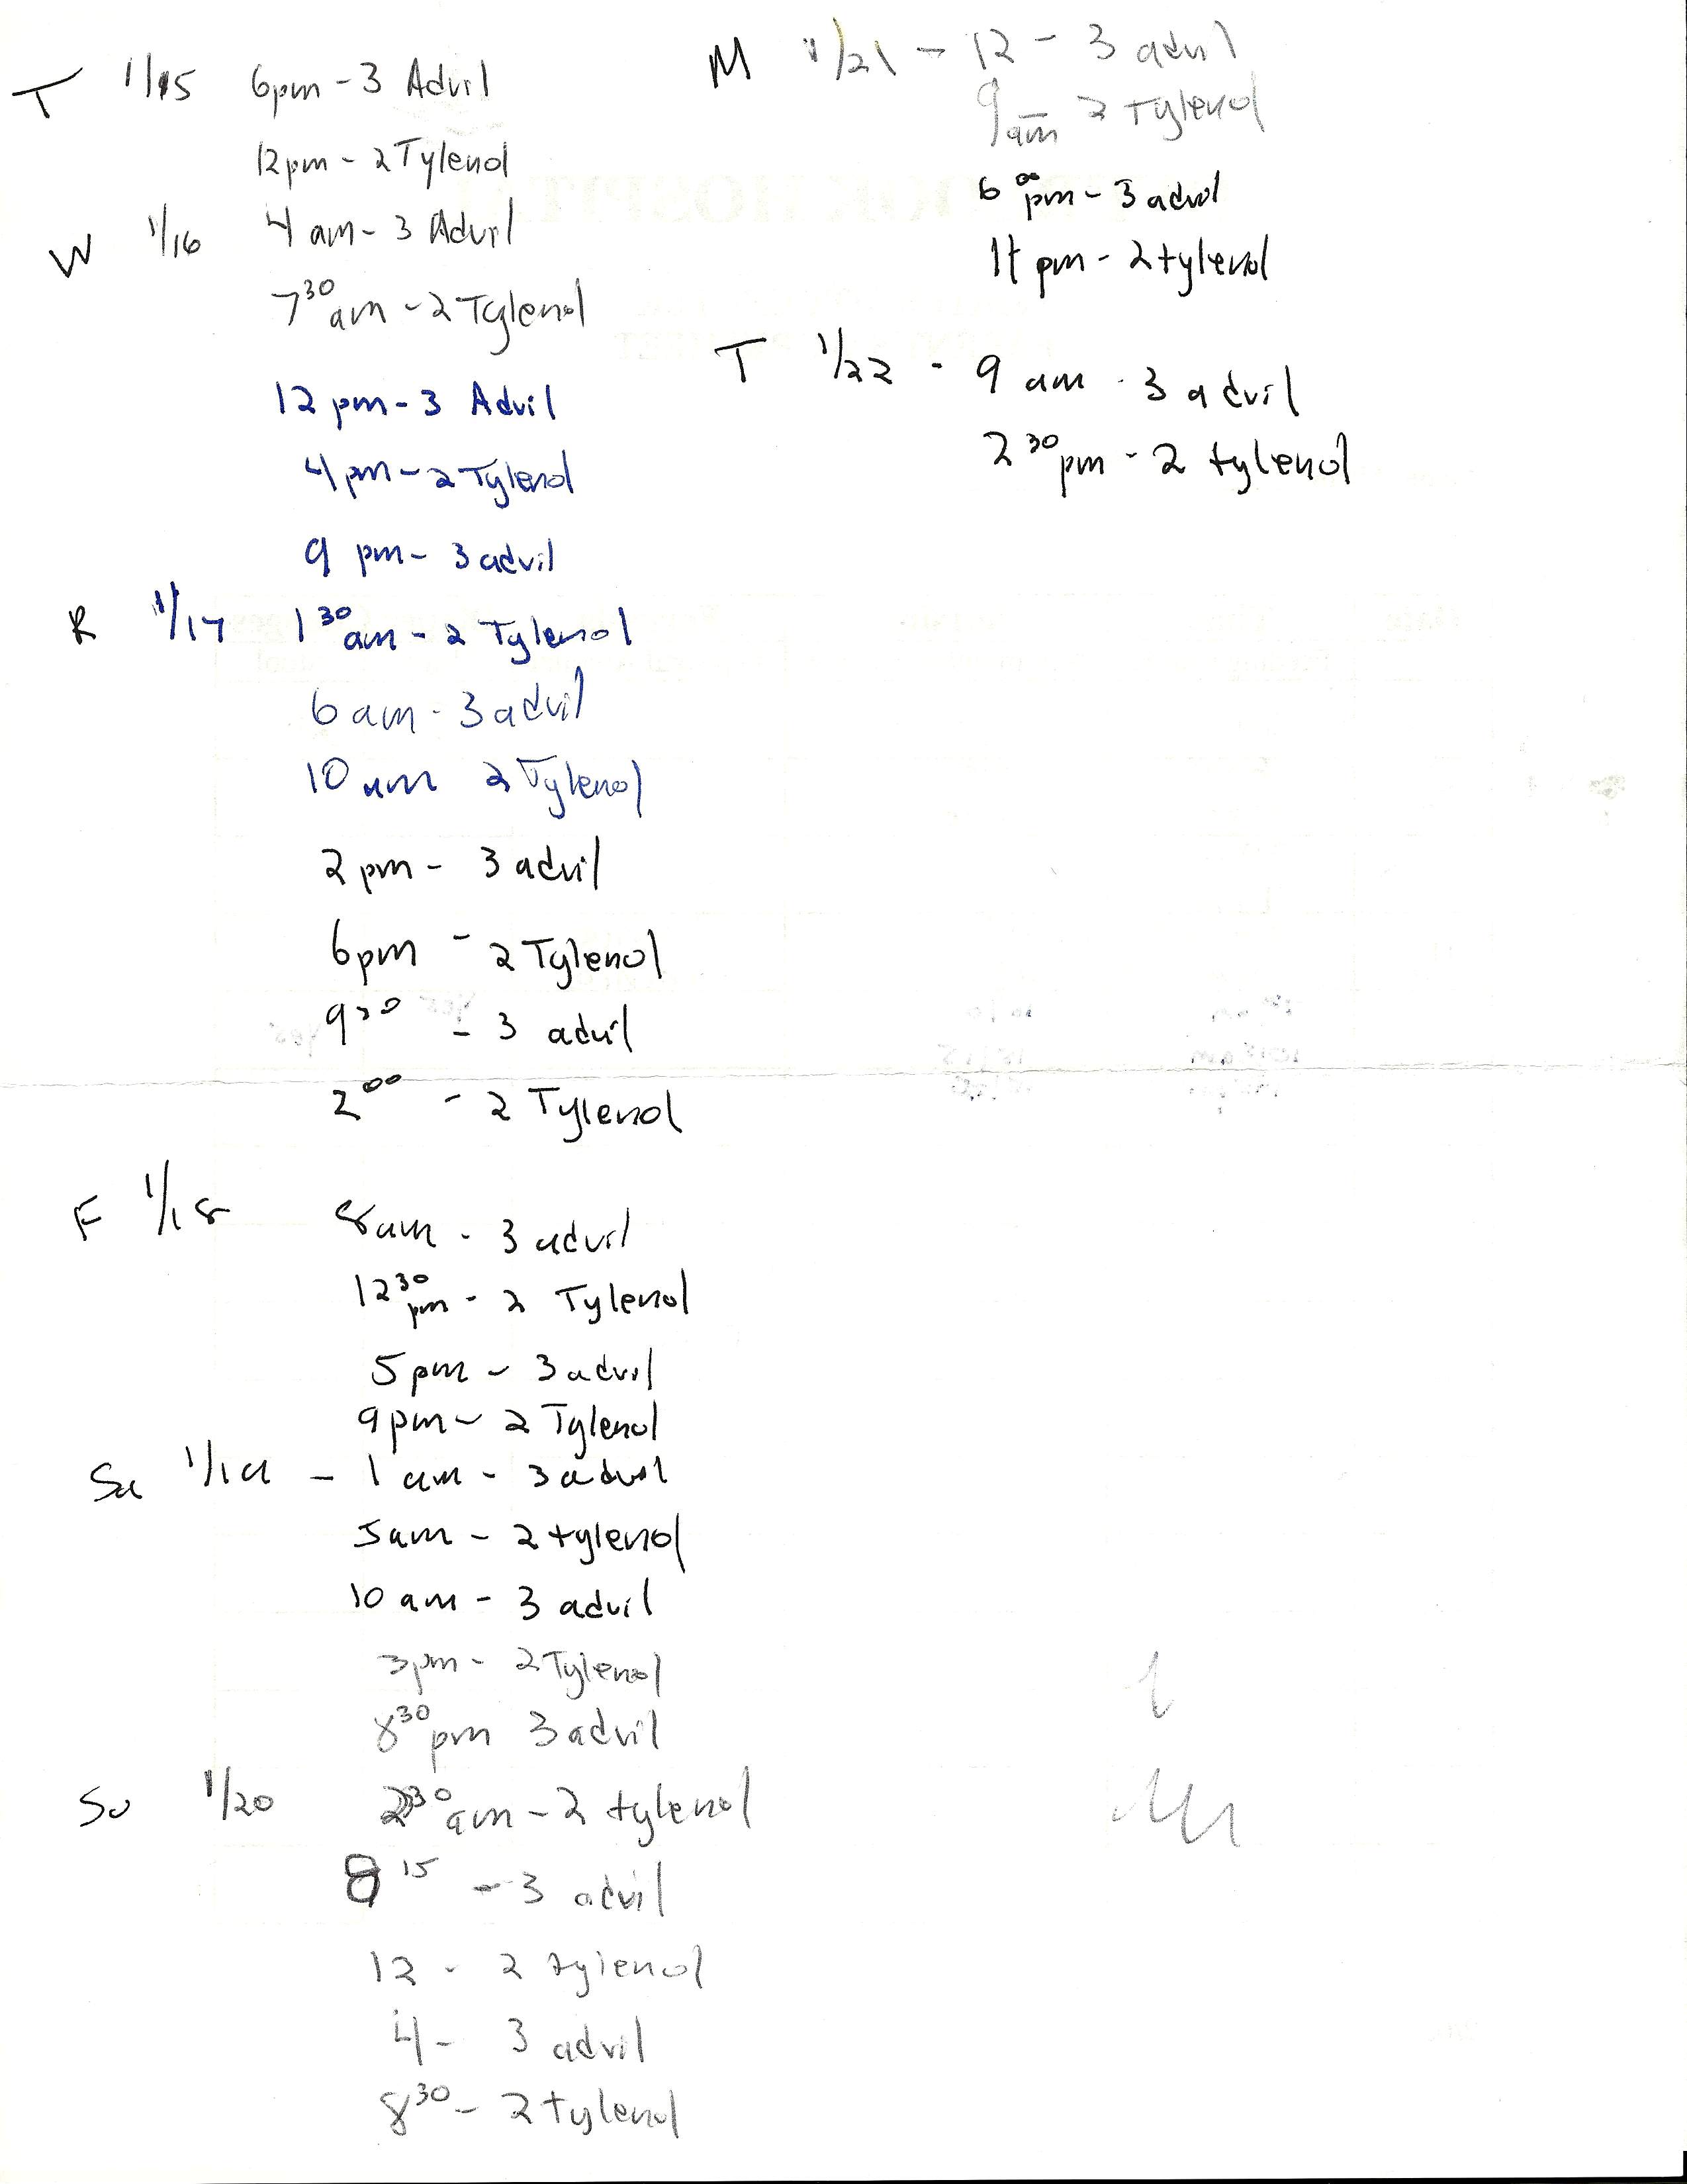 T 1/15 6pm - 3 Advil
12pm - 2 Tylenol
W 1/16 4 am - 3 Advil
7 30 am - 2 Tylenol
12 pm - 3 Advil
4 pm - 2 Tylenol
9 pm - 3 advil
R 1/17 1 30 am - 2 Tylenol
6 am - 3 advil
10 am 2 Tylenol
2 pm - 3 advil
6 pm - 2 Tylenol
9 - 3 advil
2 00 - 2 Tylenol
F 1/18 8am - 3 advil
12 30 pm - 2 Tylenol
5 pm - 3 advil
9 pm - 2 Tylenol
Sa 1/19 - 1 am - 3 advil
5am - 2 tylenol
10 am - 3 advil
3pm - 2 Tylenol
8 30 pm 3 advil
Su 1/20 2 30 am - 2 tylenol
8 15 - 3 advil
12 - 2 tylenol
4 - 3 advil
8 30 - 2 tylenol
M 1/21 - 12 - 3 advil
9 am - 2 Tylenol
6 00 pm - 3 advil
11 pm - 2 tylenol
T 1/22 - 9 am - 3 advil
2 30 pm - 2 tylenol